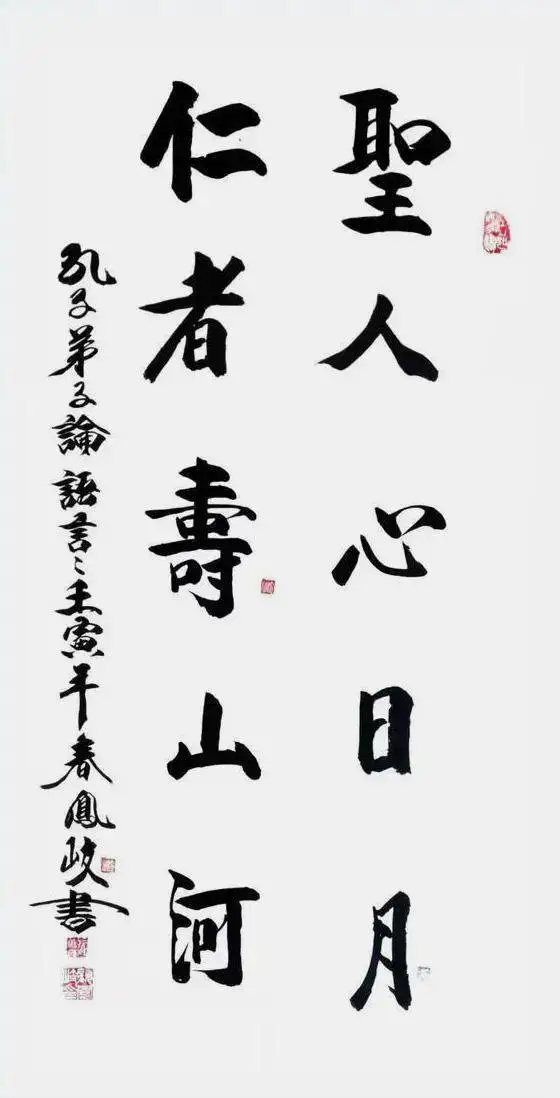 聖人心日月
仁者壽山河
孔子弟子論語言〻壬寅年春鳳岐書